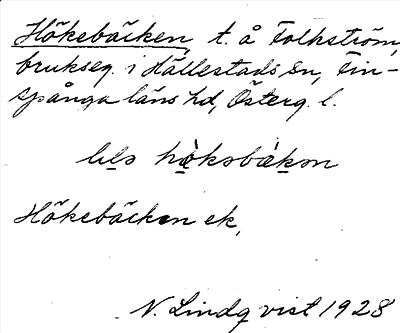 Hökebäcken, t. å Folkström,
brukseg. i Hällestads sn, Fin-
spånga läns hd, Österg. l.
Hökebäcken ek.
N. Lindqvist 1928